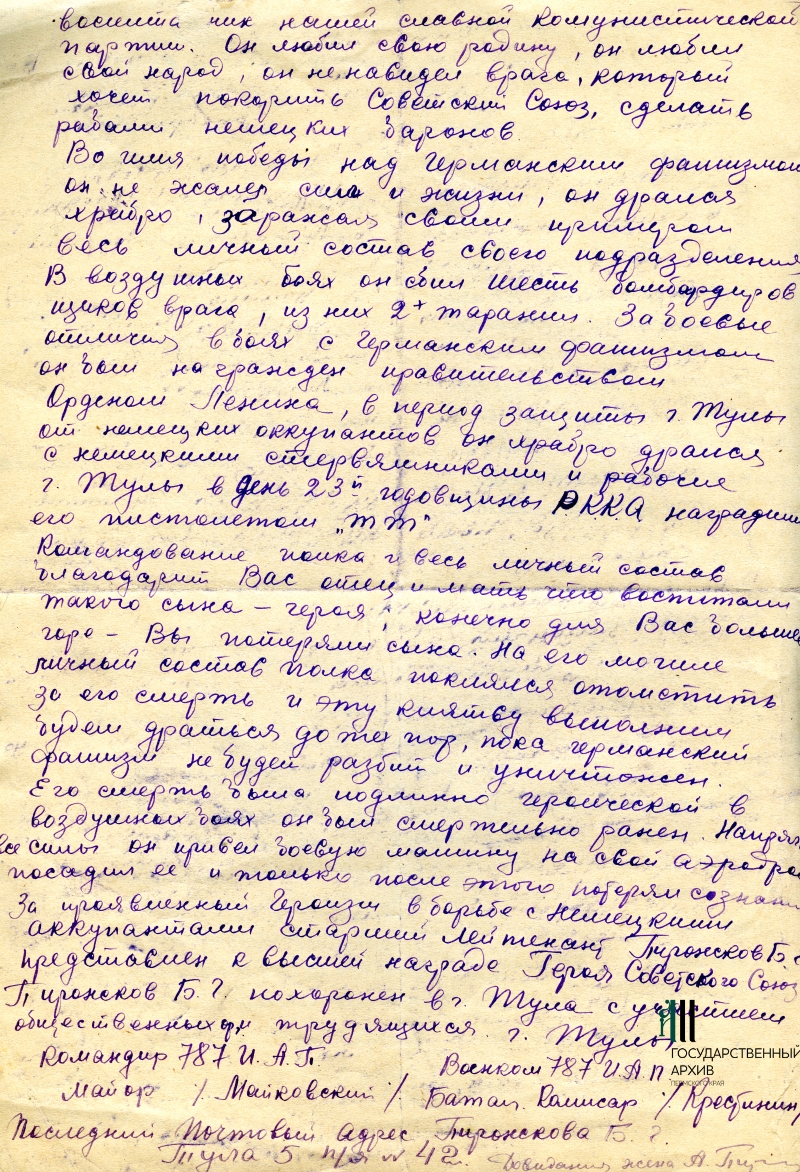 воспита ник нашей славной комунистической
партии. Он любил свою родину, он любил
свой народ, он ненавидел врага, который
хочет покорить Советский Союз, сделать
рабами немецких баронов.
Во имя победы над Германским фашизмом
он не жалел сил и жизни, он дрался
храбро, заражая своим примером
весь личный состав своего подразделения
В воздушных боях он сбил шесть бомбардиров
щиков врага, из них 2х тараним. За боевые
отличия в боях с Германским фашизмом
он был награжден правительством
Орденом Ленина, в период защиты г. Тулы
от немецких оккупантов он храбро дрался
с немецкими стервятниками и рабочие
г. Тулы в день 23й годовщины РККА наградили
его пистолетом „ТТ"
Командование полка и весь личный состав
благодарит Вас отец и мать что воспитали
такого сына – героя, конечно для Вас большое
горе – Вы потеряли сына. На его могиле
личный состав полка поклялся отомстить
за его смерть и эту клятву выполним
будем драться до тех пор, пока германский
фашизм не будет разбит и уничтожен.
Его смерть была подлинно героической в
воздушных боях он был смертельно ранен. Напряг
все силы он привел боевую машину на свой аэродром
посадил ее и только после этого потерял сознание
За проявленный Героизм в борьбе с немецкими
аккупантами старший Лейтенант Пирожков Б.Г
представлен к высшей награде Героя Советского Союз
Пирожков Б.Г. похоронен в г. Тула с участием
общественных трудящихся г. Тулы
Командир 787 И.А.П. Военком 787 И.А.П
Майор /Майковский/ Батал. Комисар /Крестинин/
Последний Почтовый адрес Пирожкова Б.Г.
Тула 5 п/я № 42.
жена А.
ГОСУДАРСТВЕННЫЙ
АРХИВ
ПЕРМСКОГО КРАЯ